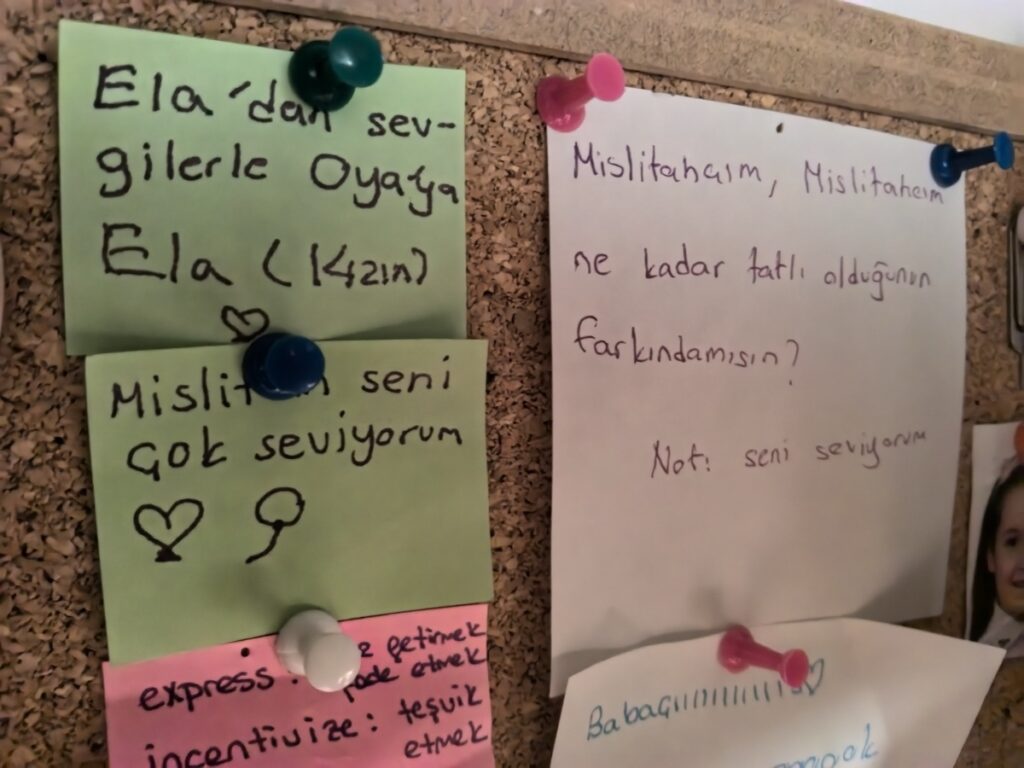 Ela'dan sev-
gilerle Oya'ya
Ela (Kızın)
seni
çok seviyorum
express:
getirmek
etmek
incentivize: teşvik
etmek
Mislitahcım, Mislitahcım
ne kadar tatlı olduğunun
farkındamısın?
Not: seni seviyorum